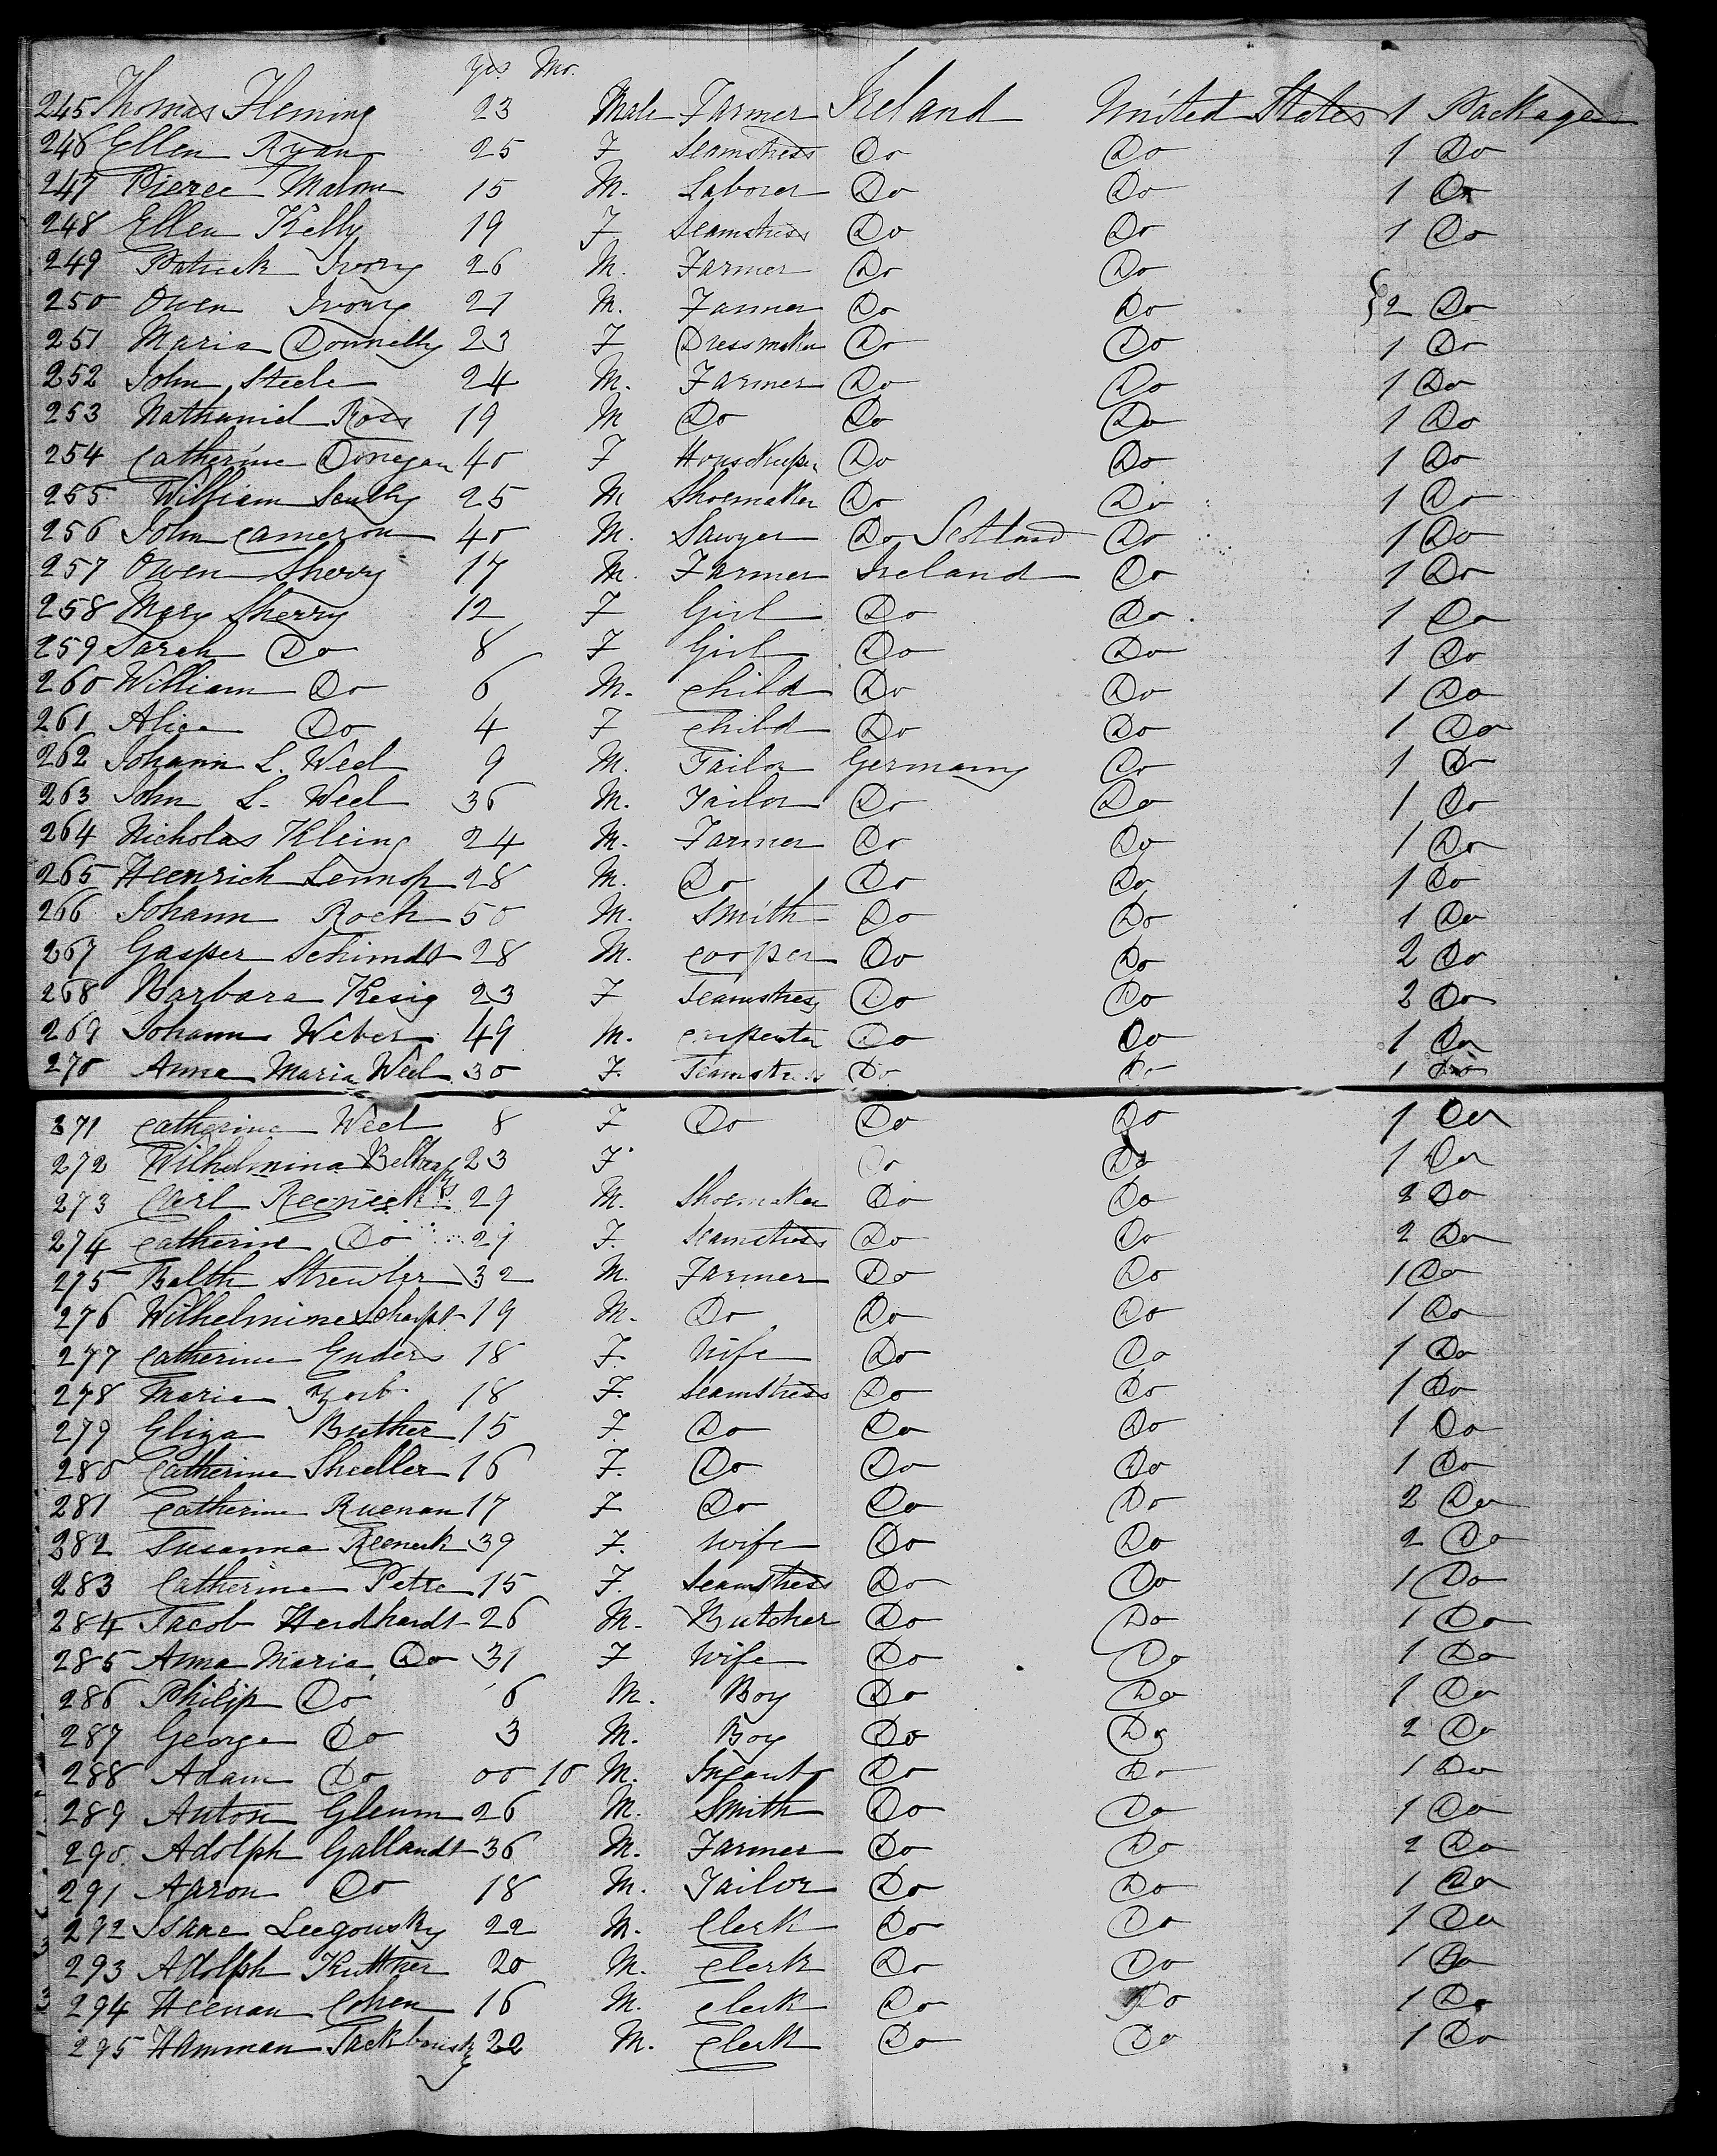 yrs Mo.
245 Thomas Fleming 23 Male Farmer Ireland United States 1 Package
246 Ellen Ryan 25 F Seamstress Do Do 1 Do
247 Pierce Malone 15 M. Laborer Do Do 1 Do
248 Ellen Kelly 19 F Seamstress Do Do 1 Do
249 Patrick Ivory 26 M. Farmer Do Do
250 Owen Ivory 21 M. Farmer Do Do } 2 Do
251 Maria Donnelly 23 F Dressmaker Do Do 1 Do
252 John Steele 24 M. Farmer Do Do 1 Do
253 Nathaniel Ross 19 M Do Do Do 1 Do
254 Catherine Donegan 40 F Housekeeper Do Do 1 Do
255 William Scully 25 M Shoemaker Do Do 1 Do
256 John Cameron 40 M. Sawyer Do Scotland Do 1 Do
257 Owen Sherry 17 M. Farmer Ireland Do 1 Do
258 Mary Sherry 12 F Girl Do Do 1 Do
259 Sarah Do 8 F Girl Do Do 1 Do
260 William Do 6 M. Child Do Do 1 Do
261 Alice Do 4 F Child Do Do 1 Do
262 Johann L. Weel 9 M. Tailor Germany Do 1 Do
263 John L. Weel 36 M. Tailor Do Do 1 Do
264 Nicholas Kleing 24 M. Farmer Do Do 1 Do
265 Heenrich Lennop 28 M. Do Do Do 1 Do
266 Johann Roch 50 M. Smith Do Do 1 Do
267 Gasper Schimdt 28 M. Cooper Do Do 2 Do
268 Barbara Kesig 23 F Seamstress Do Do 2 Do
269 Johann Weber 49 M. Carpenter Do Do 1 Do
270 Anna Maria Weel 30 F. Seamstress Do Do 1 Do
271 Catherine Weel 8 F Do Do Do 1 Do
272 Wilhelmina 23 F Do Do 1 Do
273 Carl Reeneck 29 M. Shoemaker Do Do 2 Do
274 Catherine Do 29 F. Seamstress Do Do 2 Do
275 Balth Strewler 32 M. Farmer Do Do 1 Do
276 Wilhelmine Schapt 19 M. Do Do Do 1 Do
277 Catherine Enders 18 F. Wife Do Do 1 Do
278 Maria Zorb 18 F. Seamstress Do Do 1 Do
279 Eliza Buther 15 F. Do Do Do 1 Do
280 Catherine Sheeller 16 F. Do Do Do 1 Do
281 Catherine Ruenan 17 F Do Do Do 2 Do
282 Susanna Reeneck 39 F. Wife Do Do 2 Do
283 Catherine Petre 15 F. Seamstress Do Do 1 Do
284 Jacob Herdhardt 26 M. Butcher Do Do 1 Do
285 Anna Maria Do 31 F Wife Do Do 1 Do
286 Philip Do 6 M. Boy Do Do 1 Do
287 George Do 3 M. Boy Do Do 2 Do
288 Adam Do 00 10 M. Infant Do Do 1 Do
289 Anton Glenm 26 M. Smith Do Do 1 Do
290 Adolph Gallandt 36 M. Farmer Do Do 2 Do
291 Aaron Do 18 M. Tailor Do Do 1 Do
292 Isaac Leegousky 22 M. Clerk Do Do 1 Do
293 Adolph Kuttner 20 M. Clerk Do Do 1 Do
294 Heenan Cohen 16 M. Clerk Do Do 1 Do
295 Hamman 22 M. Clerk Do Do 1 Do